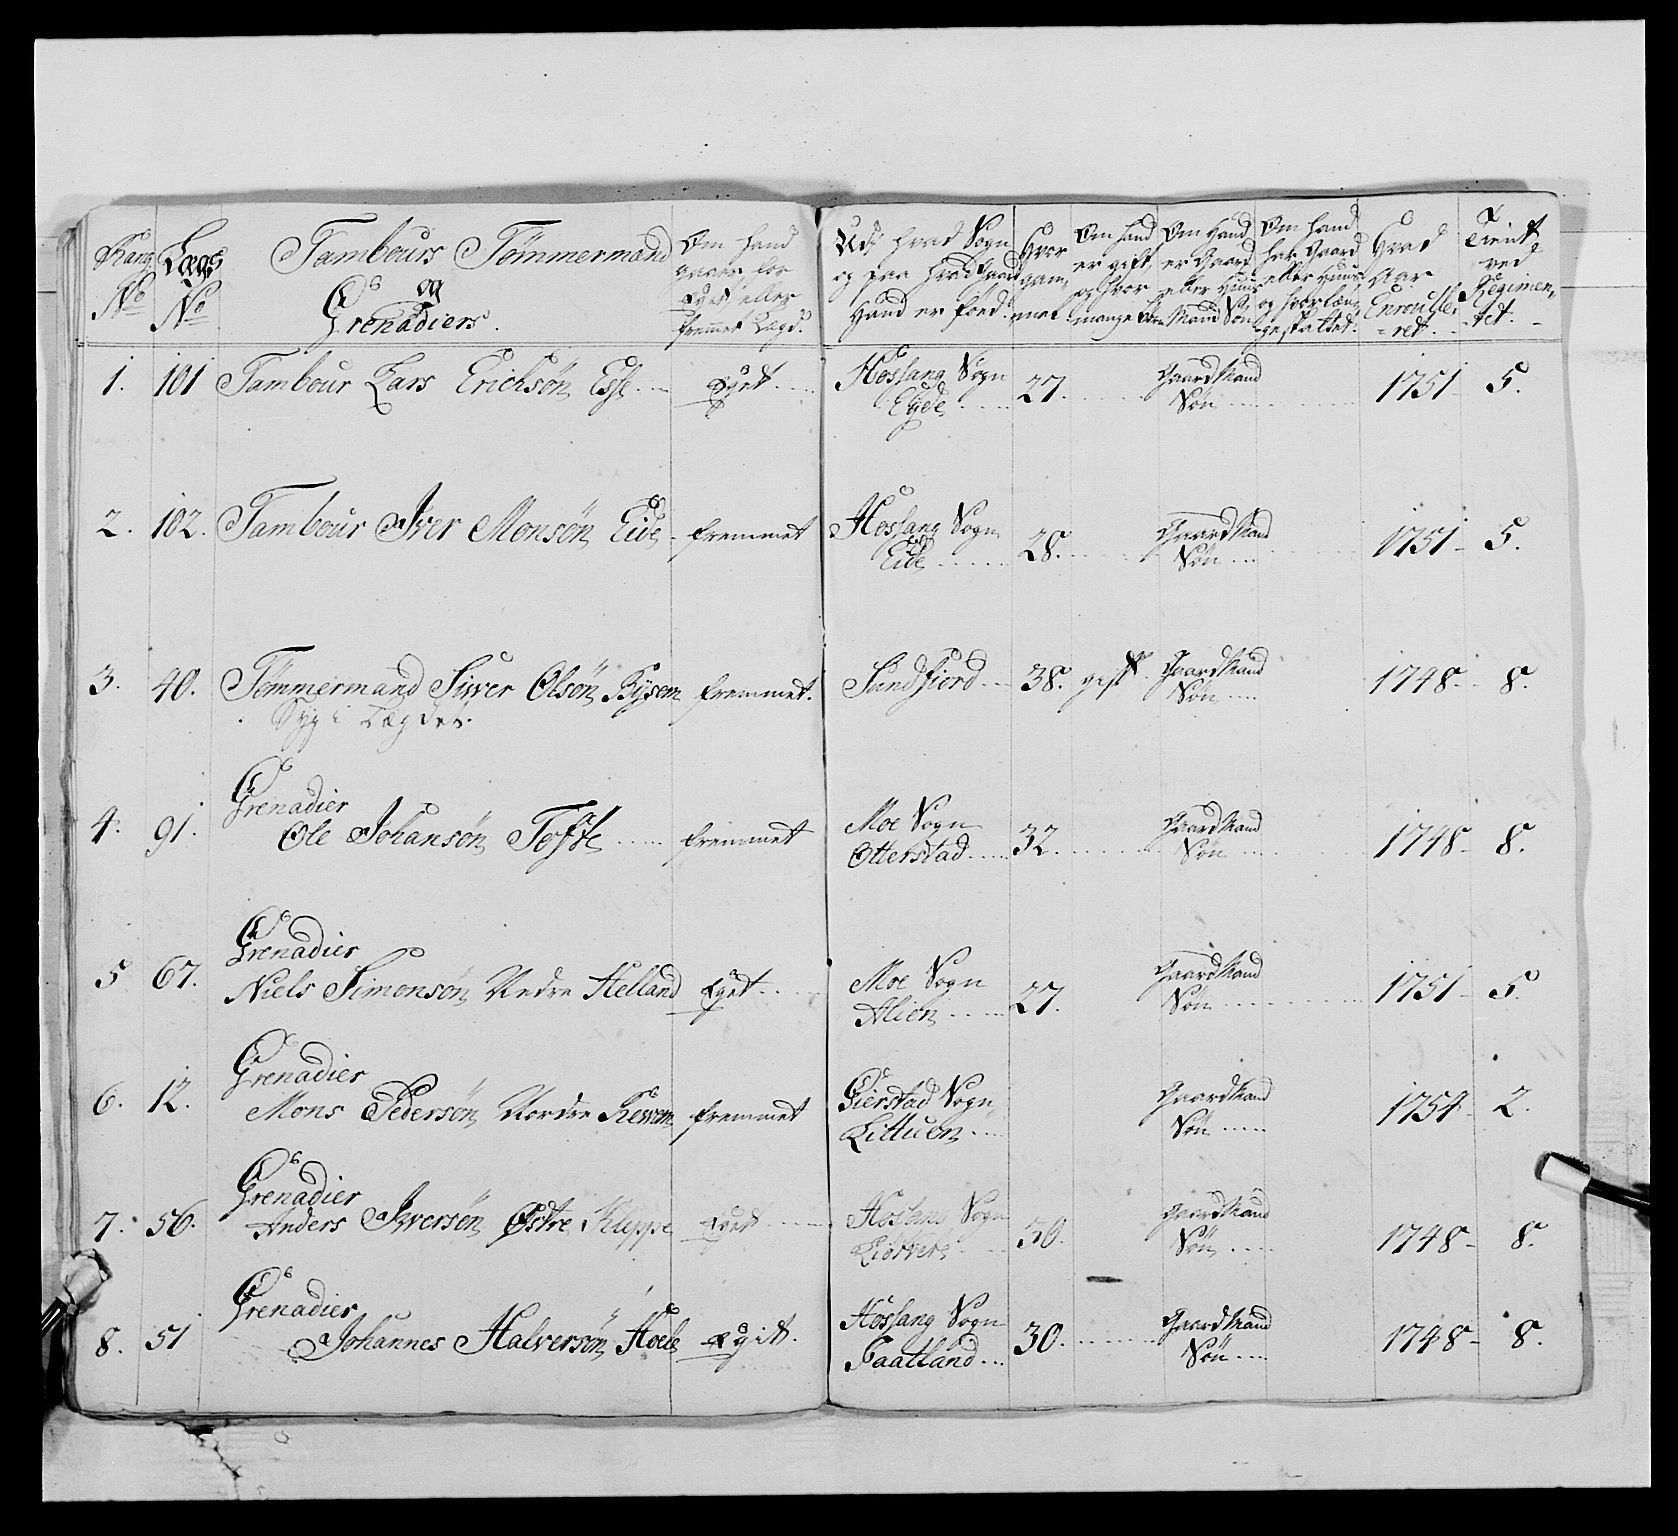 Rang No | Lægs No | Tambours Tømmermænd og Grenadiers. | Om hand gaaer for Eget eller fremmet Lægd. | Udi hvad Sogn og paa hvad Gaard Hand er föed. | Hvor gam, mel | Om hand er gift, og hvor mange Börn | Om Hand er Gaard eller Huus Mand Sön | Om hand har Gaard eller Huus og hvor længe | Hvad Aar Enroulle ret. | Tient ved Regimen, tet.
1. | 101 | Tambour Lars Erichsøn Esse | Eget | Hossang Sogn Eyde | 27. | | Gaard Mand Søn | | 1751 | 5.
2. | 102. | Tambour Iver Monsøn Eide | fremmet | Hossang Sogn Eide | 28. | | Gaard Mand Søn | | 1751 | 5.
3. | 40. | Tömmermand Siver Olsøn Bysem | fremmet. | Sundfiord | 38. | gift | Gaard Mand Søn | | 1748 | 8.
Syg i Lægdet.
4. | 91. | Grenadier Ole Johansøn Tofte | fremmet | Moe Sogn Otterstad | 32. | | Gaard Mand Søn | | 1748 | 8.
5 | 67. | Grenadier Niels Simonsøn Nedre Helland | Eget | Moe Sogn Alien | 27. | | Gaard Mand Søn | | 1751 | 5.
6. | 12. | Grenadier Mons Pedersøn Nordre | fremmet | Gierstad Sogn | | | Gaard Mand Søn | | 1754 | 2.
7. | 56. | Grenadier Anders Iversøn Østre Kleppe | Eget | Hosang Sogn | 30. | | Gaard Mand Søn | | 1748 | 8.
8. | 51 | Grenadier Johannes Halversøn | Egit. | Hossang Sogn Faatland | 30. | | Gaard Mand Søn | | 1748 | 8.